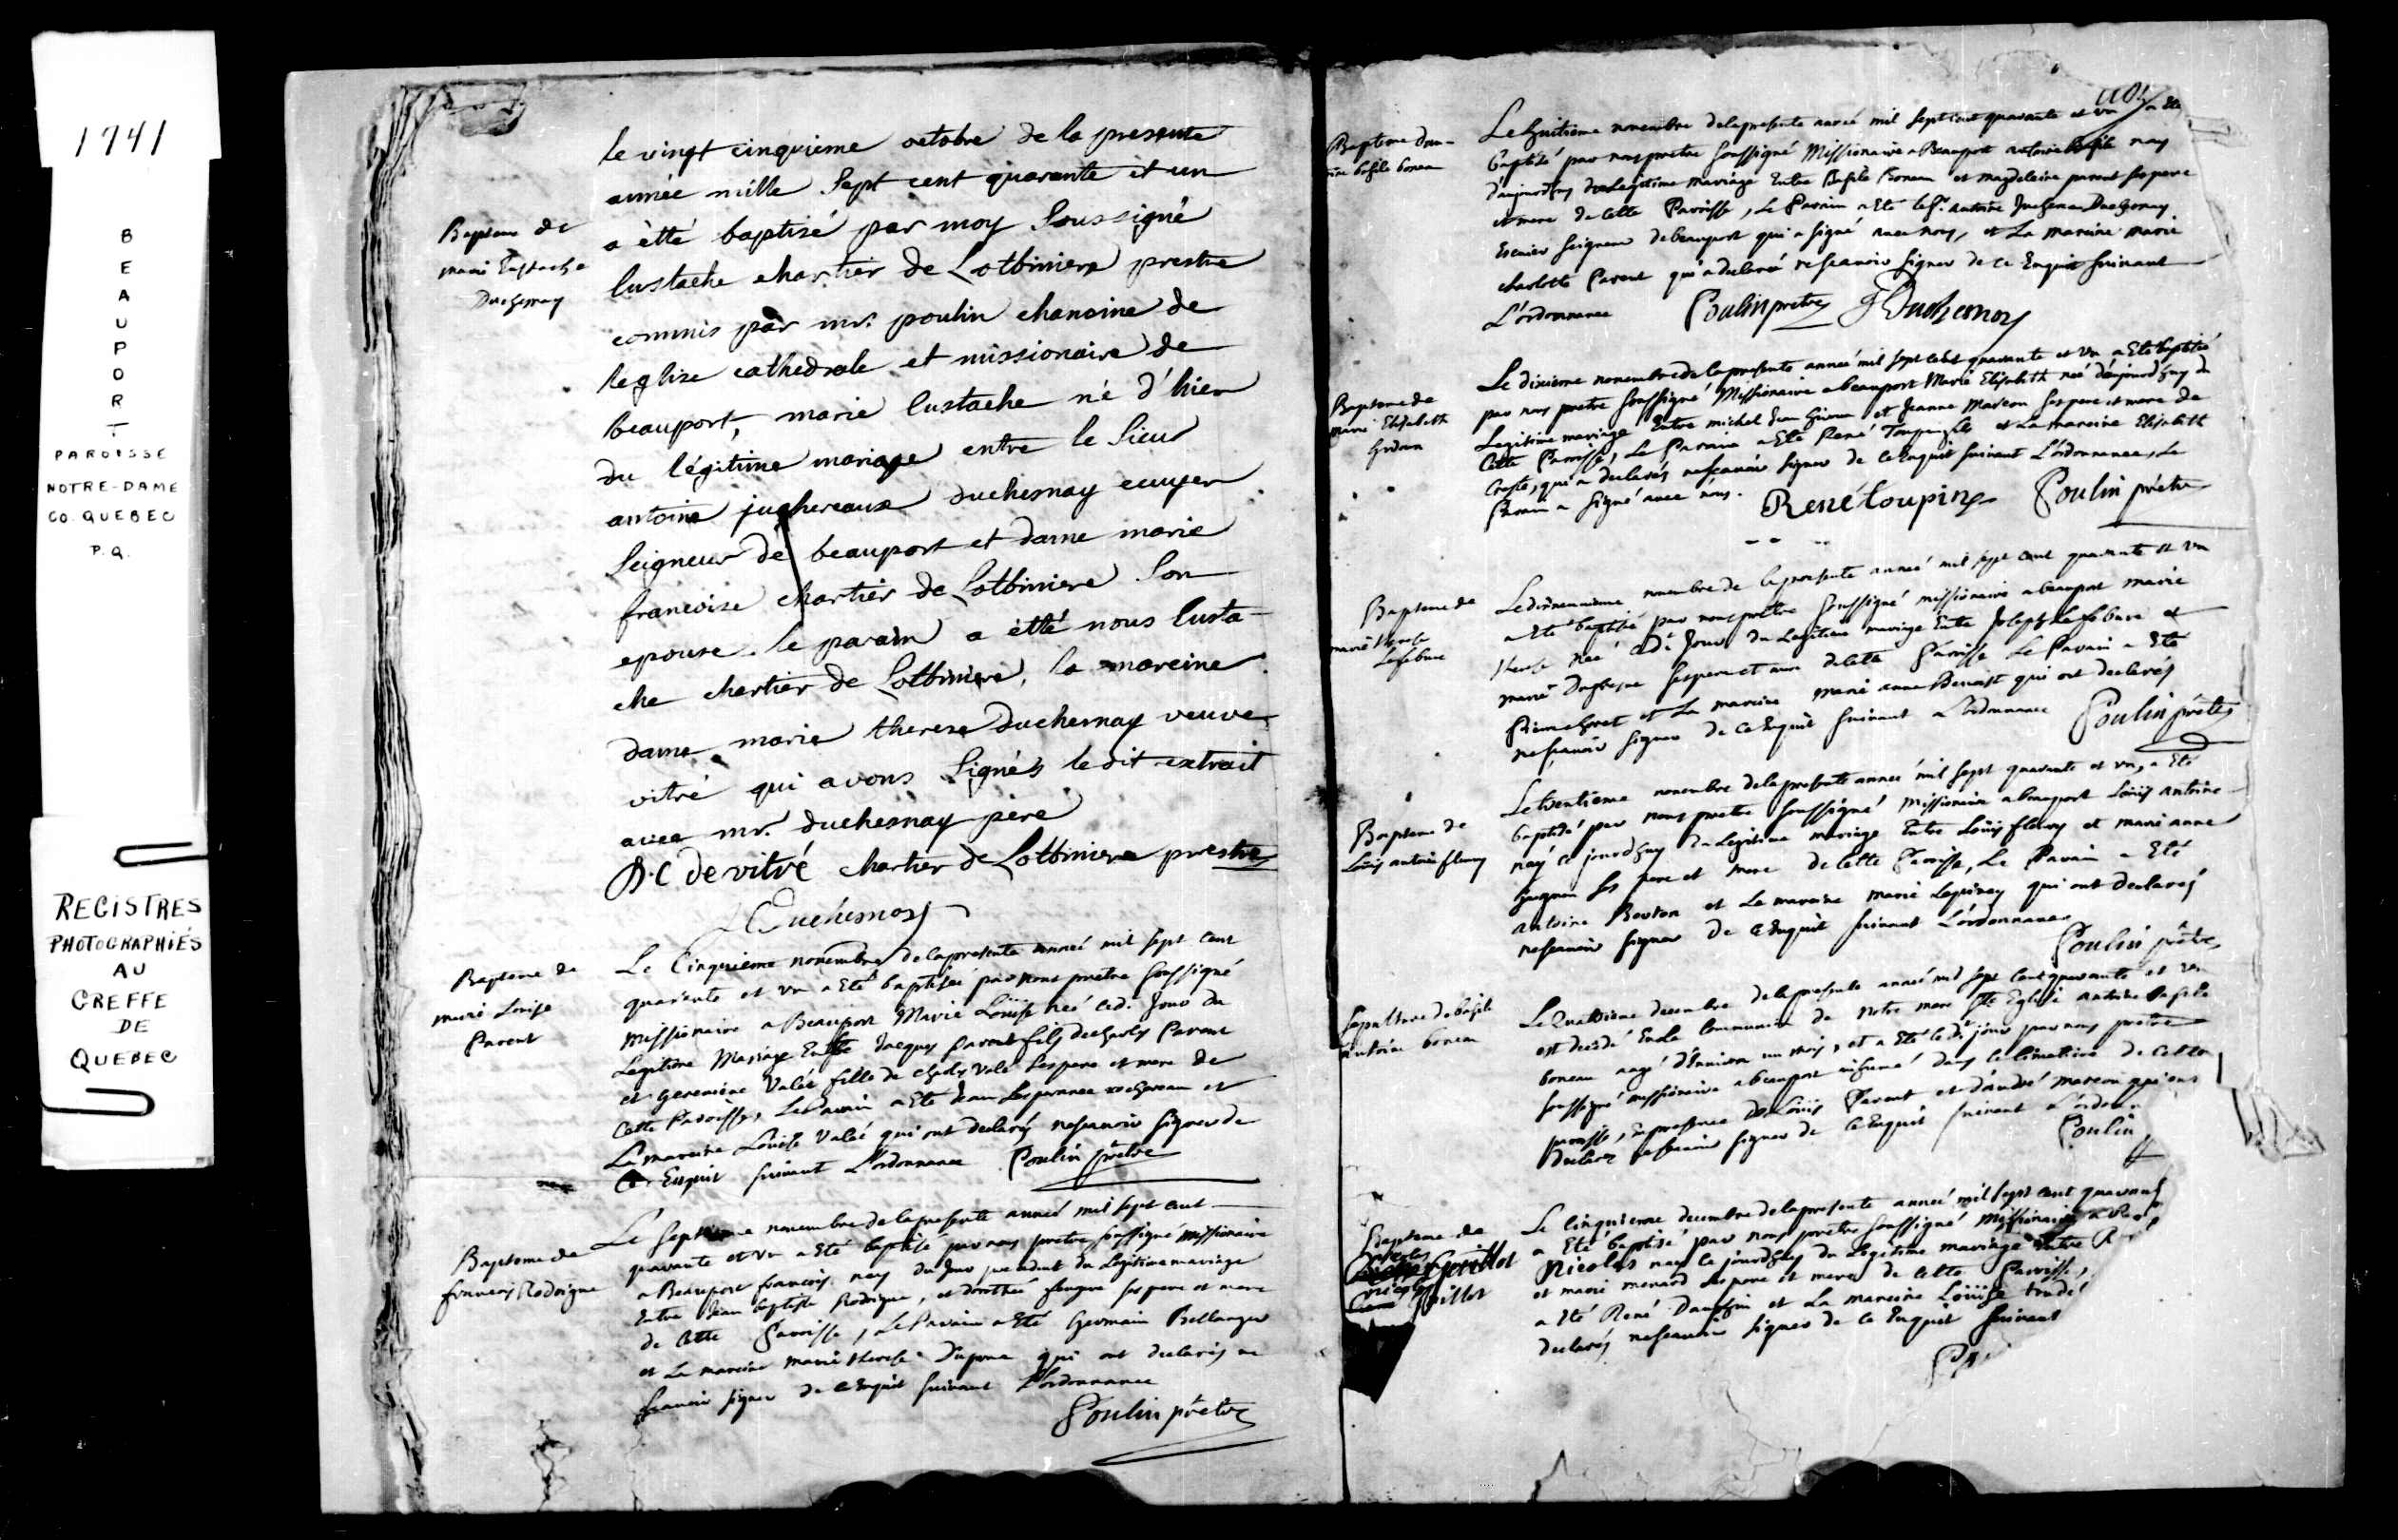 1741
BEAUPORT
PAROISSE
NOTRE-DAME
CO. QUEBEC
P.Q.
REGISTRES
PHOTOGRAPHIÉS
AU
GREFFE
DE
QUEBEC
Bapteme de
marie Eustache
Duchesnay
le vingt cinquieme octobre de la presente
année mille Sept cent quarante et un
a étté baptisé par moy Soussigné
Eustache chartier de Lotbiniere prestre
commis par mr. poulin chanoine de
leglise cathedrale et missionaire de
beauport, marie Eustache né d'hier
du légitime mariage entre le Sieur
antoine juchereaux duchesnay ecuyer
Seigneur de beauport et dame marie
francoise chartier de Lotbiniere Son
epouse. le parain a étté nous Eusta-
che chartier de Lotbiniere, la mareine
dame marie therese Duchesnay veuve
vitré qui avons Signés le dit extrait
avec mr. duchesnay père
D.C de vitré chartier de Lotbiniere prestre
Duchesnay
Bapteme de
marie Louise
Parent
Le Cinquieme novembre de la presente année mil sept cent
quarente et vn a Eté baptisée par nous pretre soussigné
Missionaire a Beauport Marie Loüise neé ced. Jour du
Legitime Mariage Entre Jacques parent fils de charles Parent
et genevieve Valée fille de charles Valé Ses pere et mere de
Cette Paroisse, Le Parain a Eté Jean Lesperance rochereau et
La mareine Loüise Valeé qui ont declarés nesçavoir signer de
Ce Enquit suivant L'ordonnance Poulin prêtre
Bapteme de
francois Rodrigue
Le septieme novembre de la presente anneé mil sept cent
quarante et vn a Eté baptisé par nous pretre soussigné missionaire
a Beauport francois nay du Jour precedent du Legitime mariage
Entre Jean baptiste Rodrigue, et dorothé ses pere et mere
de Cette Paroisse, Le Parain a Eté Germain Bellanger
et La mareine marie therese Dupras qui ont declarés ne
sçavoir signer de ce Enquit suivant L'ordonnance
Poulin prêtre
Bapteme d'an-
toine basile boneau
Le huitieme novembre de la presente anneé mil sept cent quarante et vn a Eté
baptisé par nous pretre soussigné Missionaire a Beauport antoine Basile nay
d'aujourd'huy du Legitime mariage Entre Basile Boneau et magdeleine parent ses pere
et mere de Cette Paroisse, Le Parain a Eté le Sr. antoine Juchereau Duchesnay
Ecuier seigneur de beauport qui a signé avec nous, et La mareine marie
charlotte Parent qui a declaré nesçavoir signer de ce Enquit suivant
L'ordonnance Poulin pretre J Duchesnay
Bapteme de
marie Elisabeth
Giroux
Le dixieme novembre de la presente anneé mil sept cent quarante et Vn a Eté baptisé
par nous pretre soussigné Missionaire a beauport Marie Elisabeth neé d'aujourd'huy du
Legitime mariage Entre michel Jean Giroux et Jeanne Marcou ses pere et mere de
Cette Paroisse, Le Parain a Eté René Toupin fils et La mareine Elisabeth
Creste, qui a declarés nesçavoir signer de Ce Enquit suivant L'ordonnance, Le
Parain a signé avec nous. René toupin Poulin prêtre
Bapteme de
marie therese
Lefebure
Le dixneuvieme novembre de la presente anneé mil sept cent quarante et vn
a Eté baptisé par nous prêtre soussigné missionaire a beauport marie
therese neé ced. Jour du Legitime mariage Entre Joseph Lefebure et
marie Dugresne ses pere et mere de Cette Paroisse Le Parain a Eté
Pierre et La mareine marie anne Benoist qui ont declarés
nesçavoir signer de Ce Enquit suivant L'ordonnance Poulin prêtre
Bapteme de
Loüis antoine fleury
Le trentieme novembre de la presente anneé mil sept quarante et vn, a Eté
baptisé par nous pretre soussigné Missionaire a beauport Loüis antoine
nay ce jourd'huy du Legitime mariage Entre Loüis fleury et marie anne
ses pere et mere de Cette Paroisse, Le Parain a Eté
antoine et La mareine marie Lepinay qui ont declarés
nesçavoir signer de ce Enquit suivant L'ordonnance
Poulin prêtre
Sepulture de basile
antoine boneau
Le Quatrieme decembre de la presente anneé mil sept Cent quarante et vn
est decedé En la Communion de Notre mere Ste Eglise antoine basile
boneau aagé d'Environ un mois, et a Eté le dt jour par nous pretre
soussigné missionaire a beauport inhumé dans le Cimetiere de Cette
paroisse, En presence de Loüis Parent et d'andré marcou qui ont
declarés nesçavoir signer de Ce Enquit suivant L'ordon
Poulin
Bapteme de
nicolas
Guillot
Le Cinquieme decembre de la presente anneé mil sept cent quarant
a Eté baptisé par nous pretre soussigné Missionaire a
Nicolas nay ce jourd'huy du Legitime mariage Entre
et marie menard ses pere et mere de Cette Paroisse,
a Eté René Dauphin et La mareine Loüise
declarés nesçavoir signer de Ce Enquit suivant